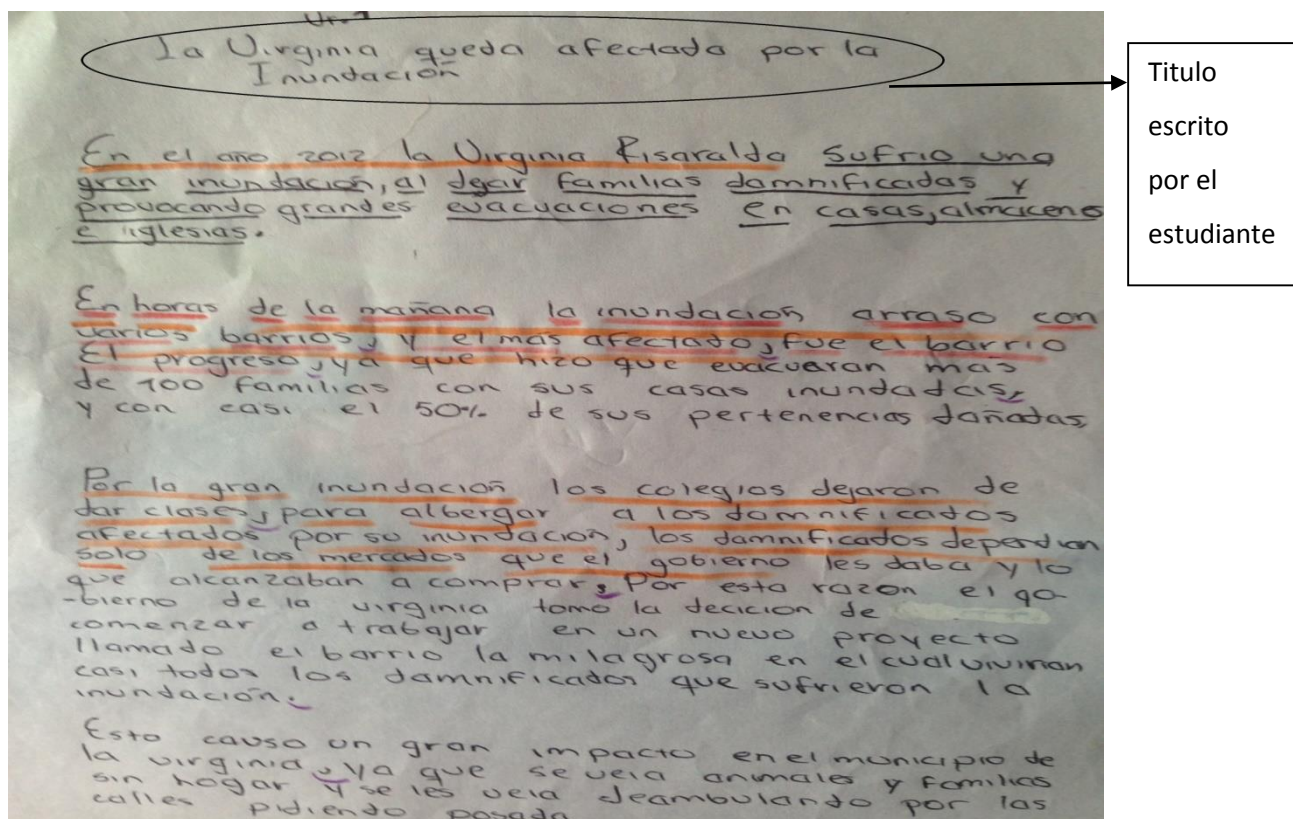 La Virginia queda afectada por la
Inundación
En el año 2012 la Virginia Risaralda sufrio una
gran inundacion, al dejar familias damnificadas y
provocando grandes evacuaciones en casas, almacenes
e iglesias.
En horas de la mañana la inundacion arraso con
varios barrios, y el mas afectado, fue el barrio
El progreso, ya que hizo que evacuaran mas
de 100 familias con sus casas inundadas,
y con casi el 50% de sus pertenencias dañadas,
Por la gran inundacion los colegios dejaron de
dar clases, para albergar a los damnificados
afectados por su inundacion, los damnificados dependian
solo de los mercados que el gobierno les daba y lo
que alcanzaban a comprar, Por esta razon el go-
-bierno de la virginia tomo la decicion de
comenzar a trabajar en un nuevo proyecto
llamado el barrio la milagrosa en el cual vivirian
casi todos los damnificados que sufrieron la
inundación.
Esto causo un gran impacto en el municipio de
la virginia, ya que se veia animales y familias
sin hogar y se les veia deambulando por las
calles pidiendo posada
Titulo
escrito
por el
estudiante